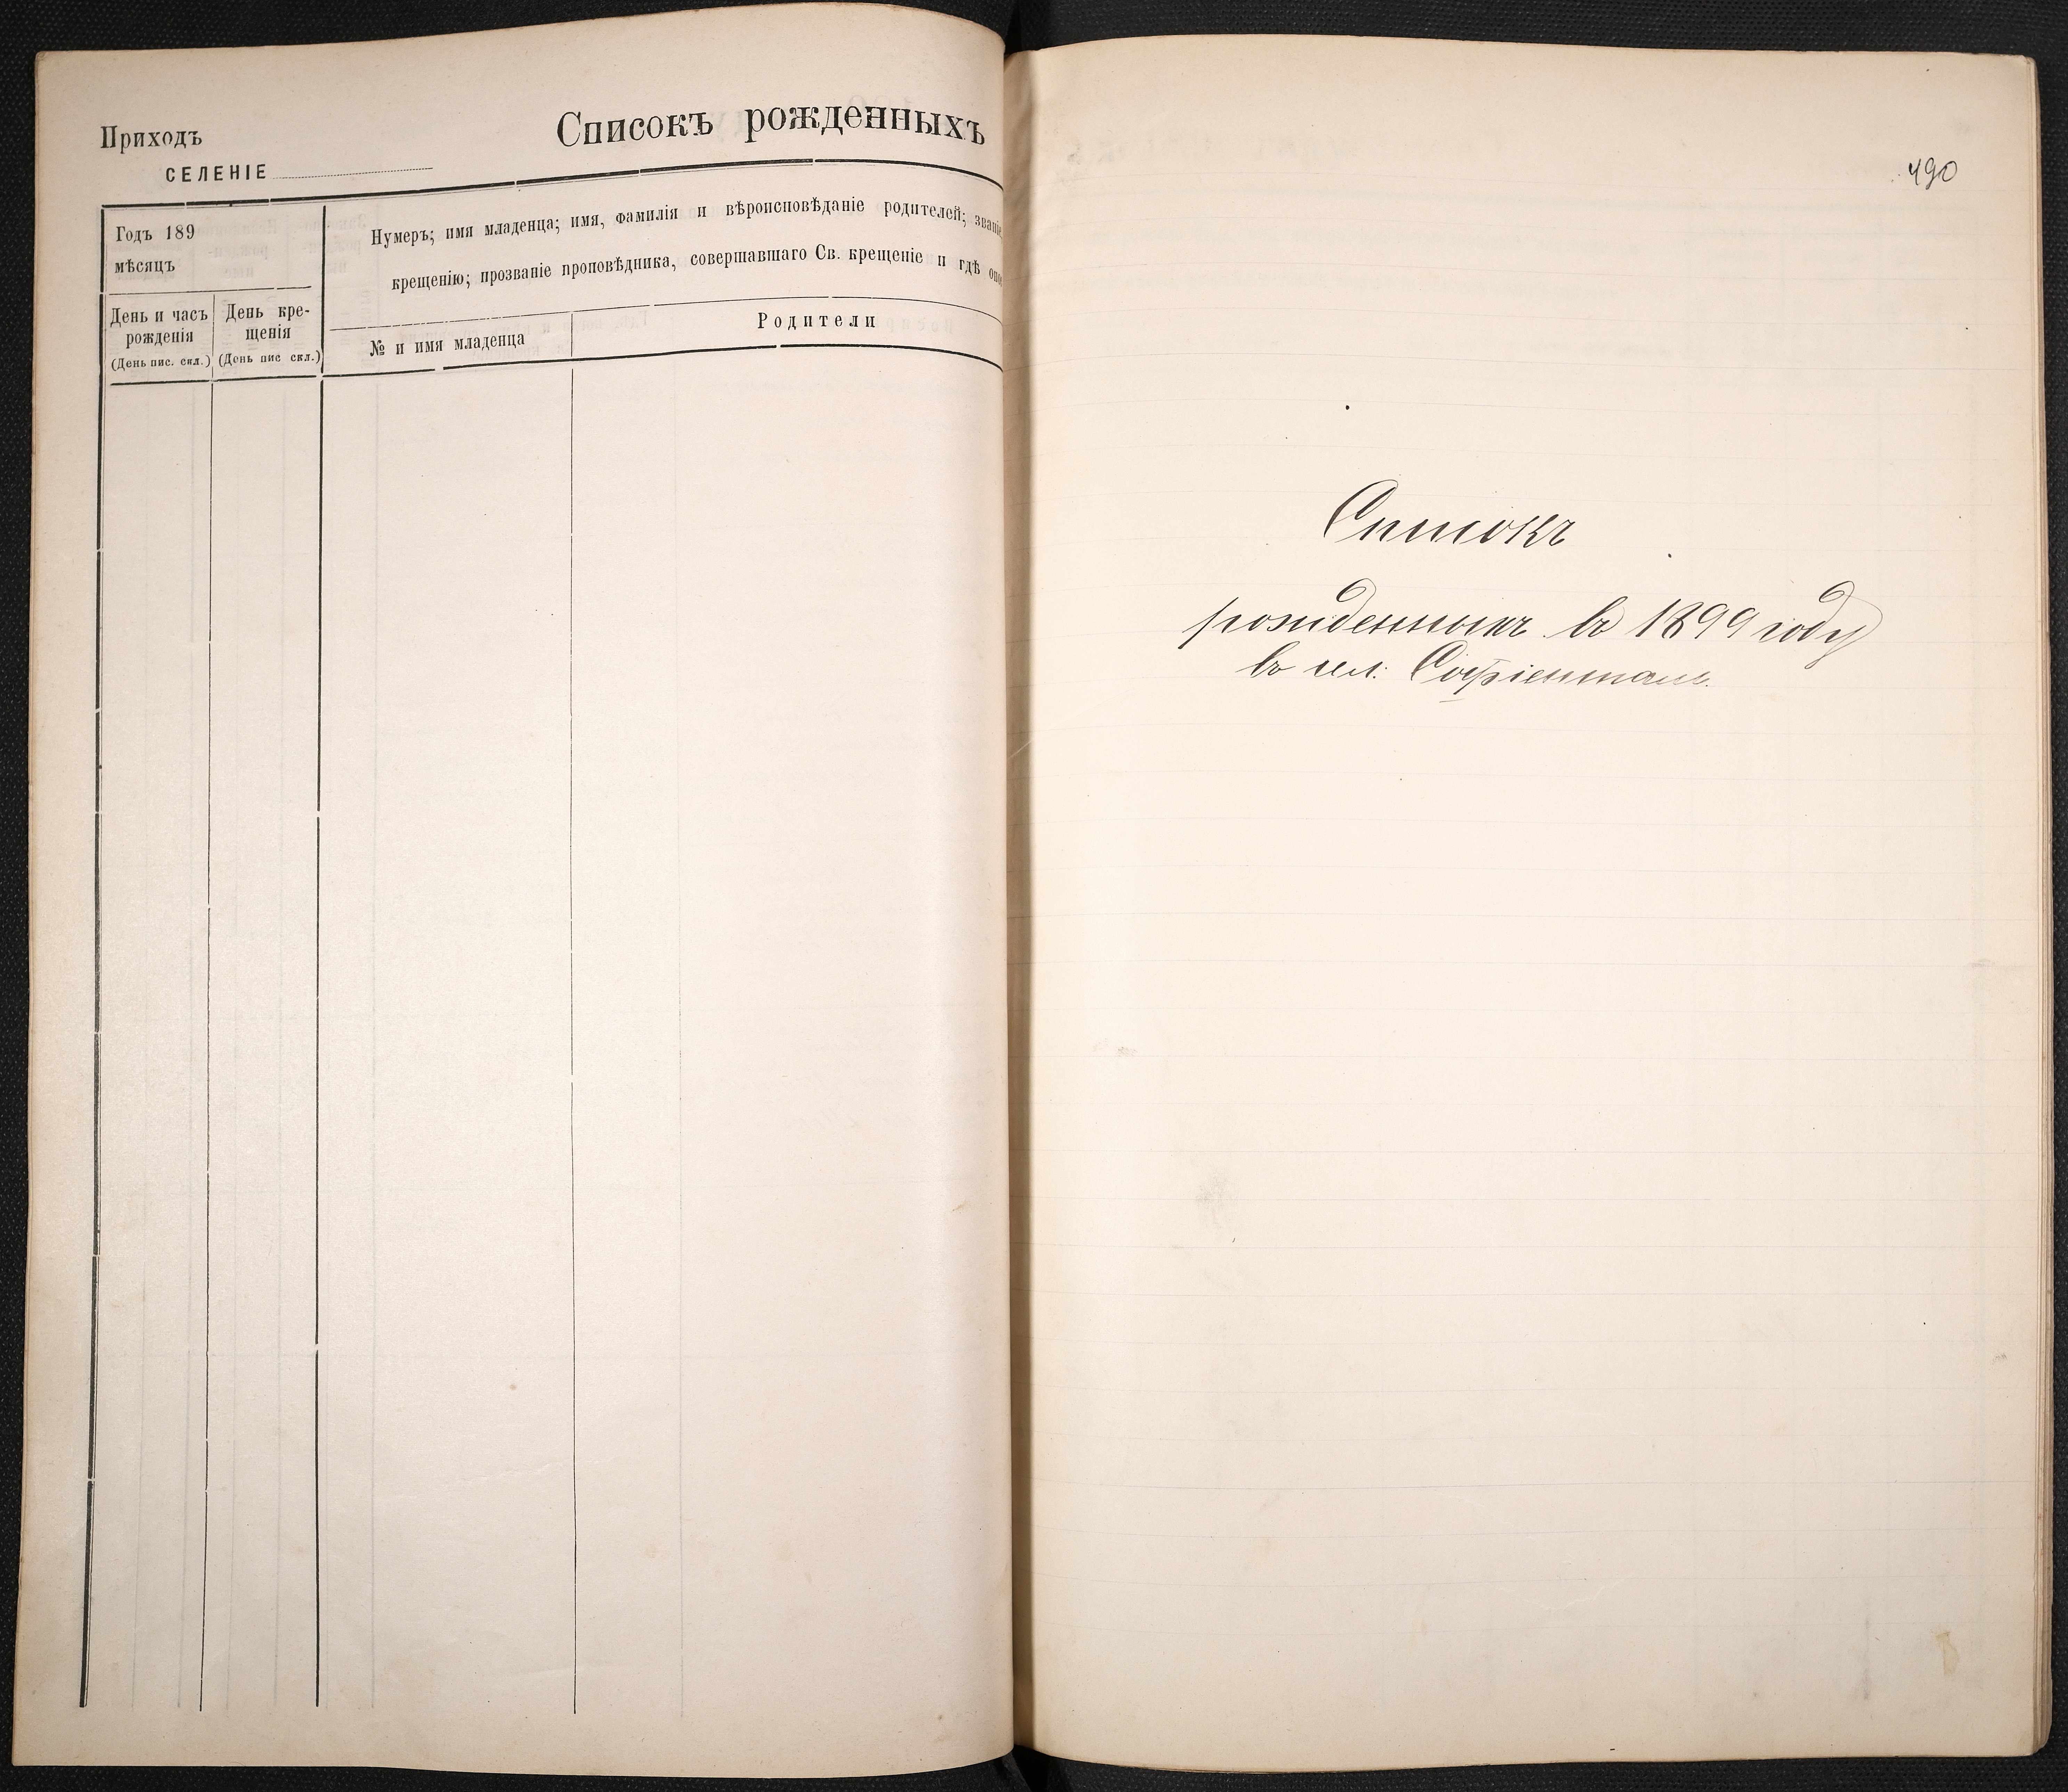 Приходъ
СЕЛЕНІЕ
Списокъ рожденныхъ
Годъ 189
мѣсяцъ
День и часъ
рожденія
(День пис. скл.)
День кре-
щенія
(День пис скл.)
Нумеръ; имя младенца; имя, фамилія и вѣроисповѣданіе родителей; званіе
крещенію; прозваніе проповѣдника, совершавшаго Св. крещеніе и гдѣ оно
№ и имя младенца
Родители
490
Списокъ
рожденныхъ въ 1899 году
въ сел: Софіенталь.